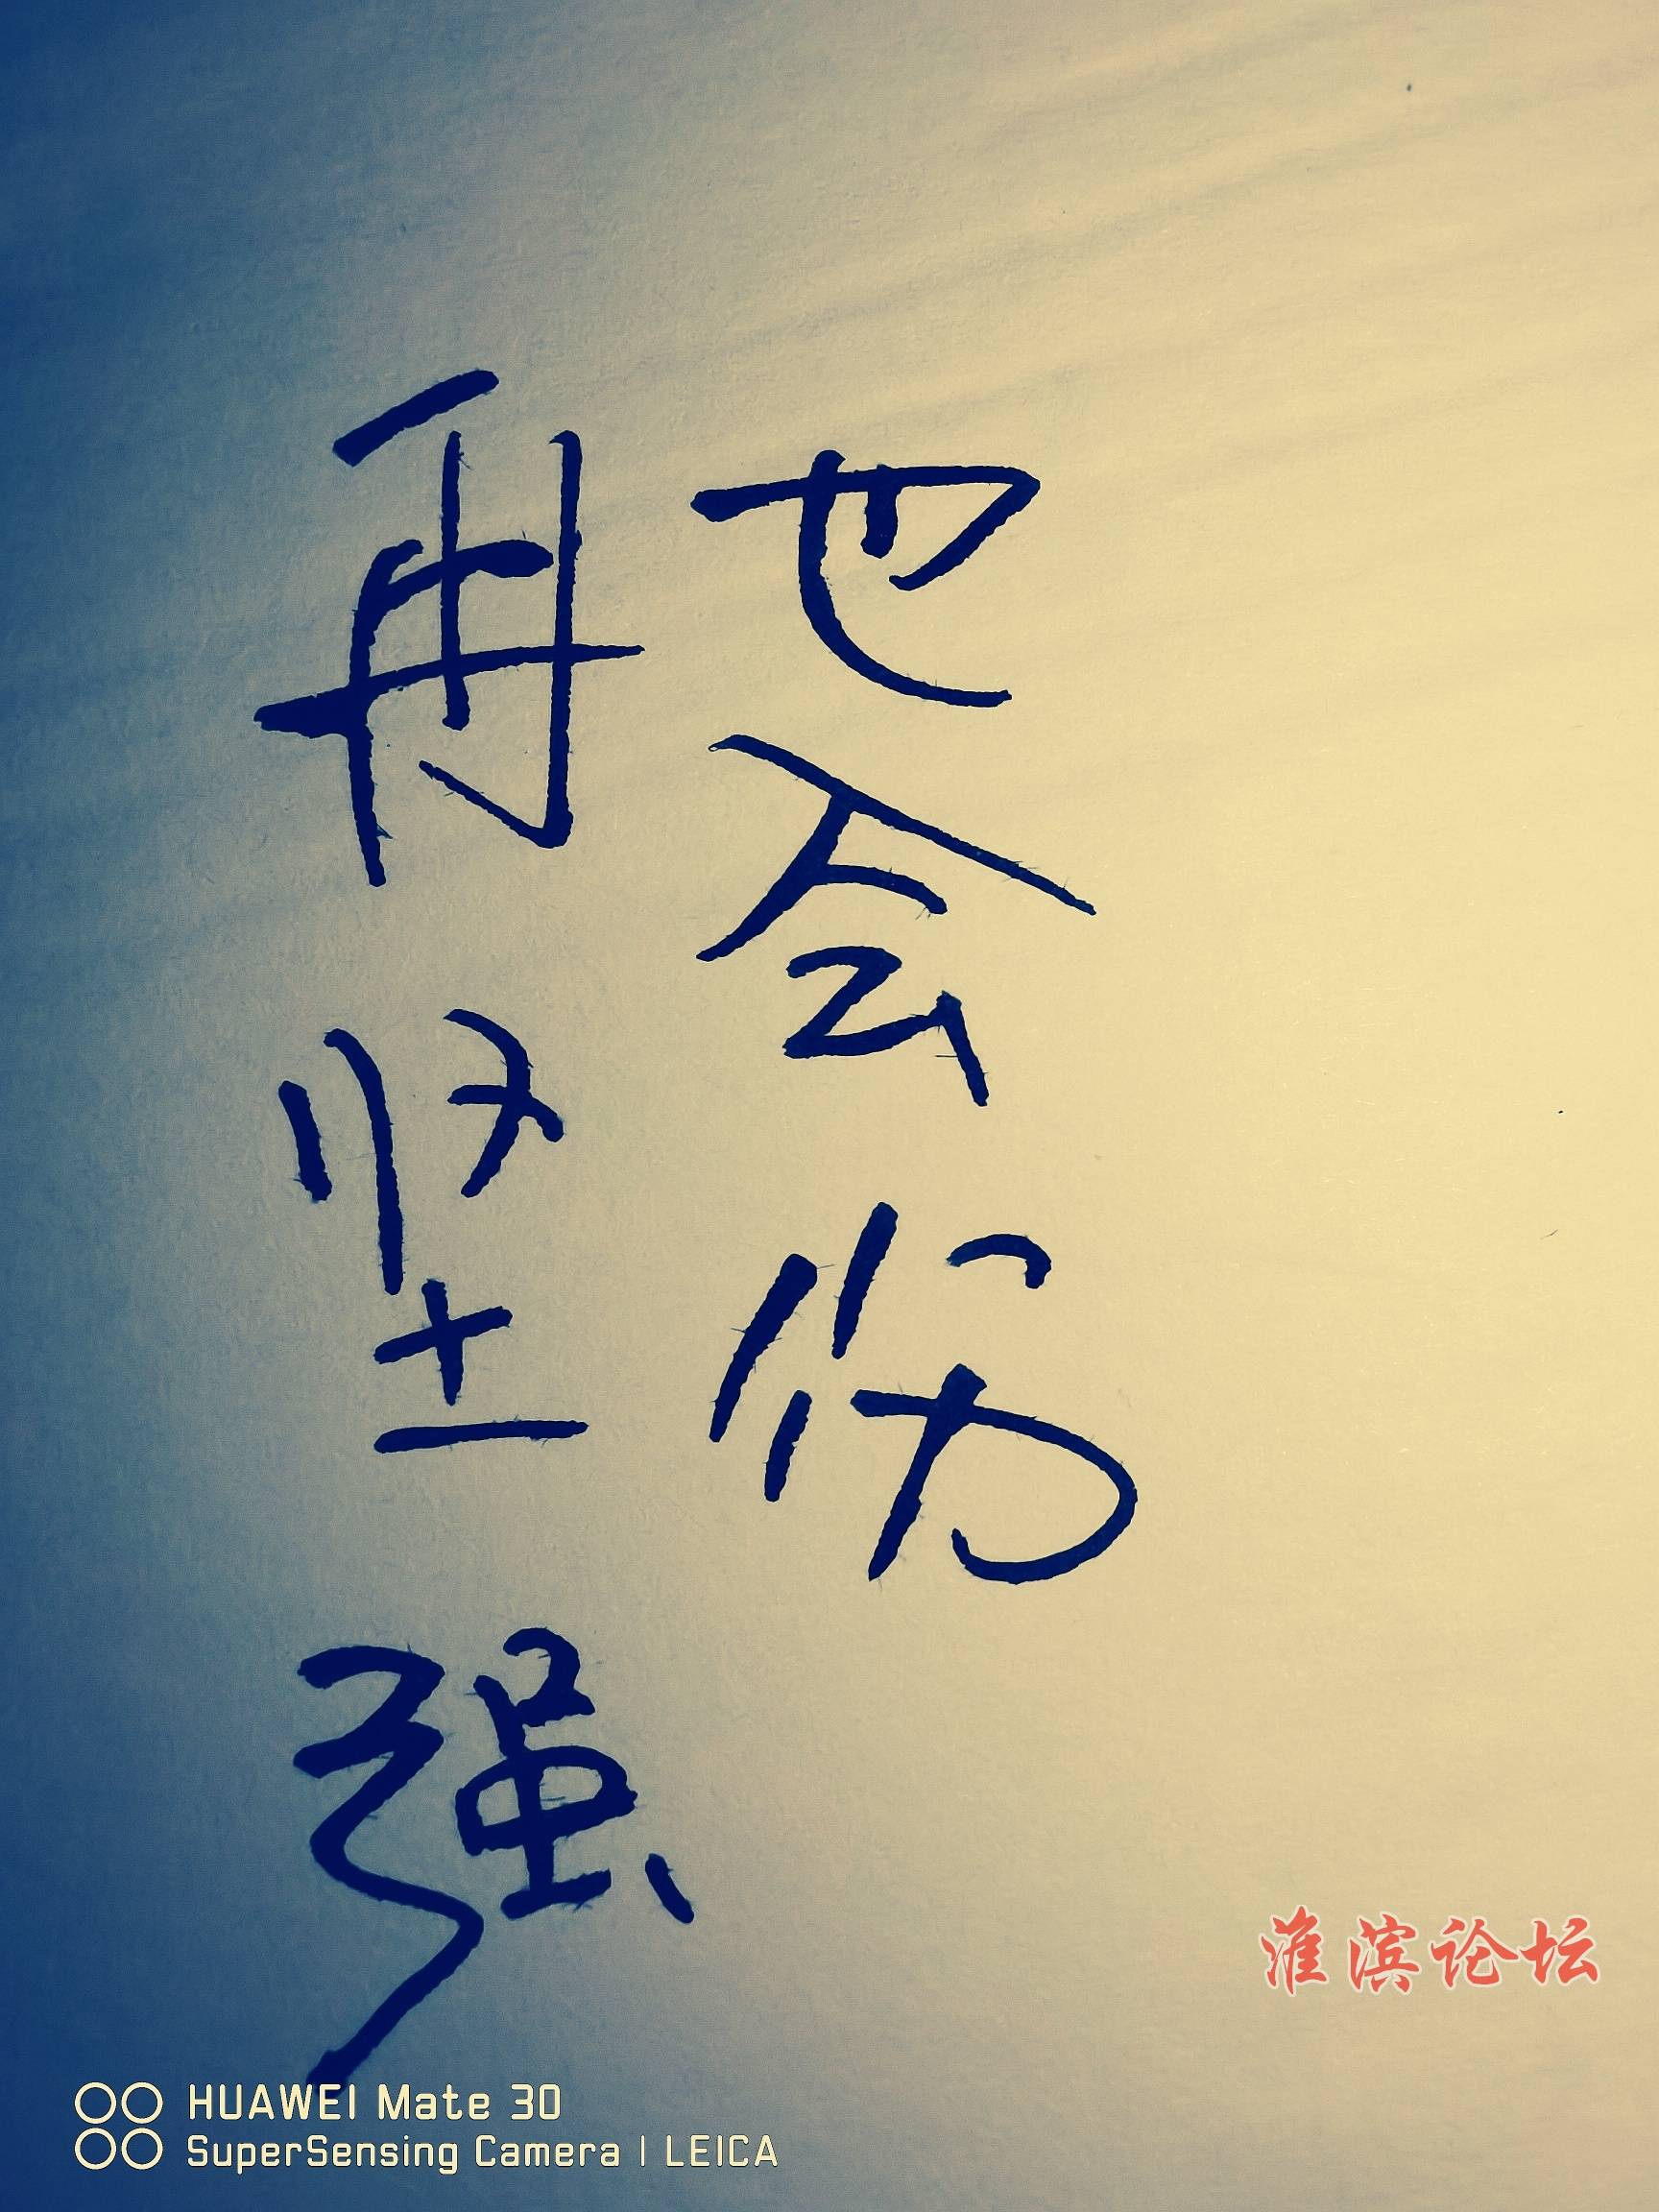 再坚强
也会伤
淮滨论坛
HUAWEI Mate 30
SuperSensing Camera | LEICA